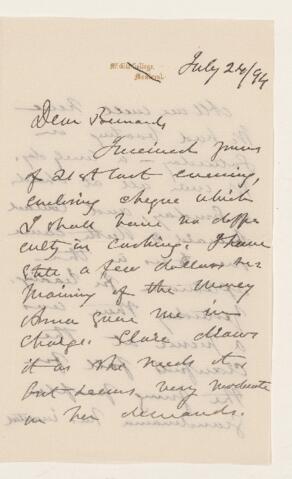 McGill College,
Montreal.
July 24/94
Dear Bernard
I received yours
of 21st last evening,
enclosing cheque which
I shall have no diffi
culty in cashing. I have
still a few dollars re
maining of the money
Anna gave me in
charge. Clare draws
it as she needs it
but seems very moderate
in her demands.